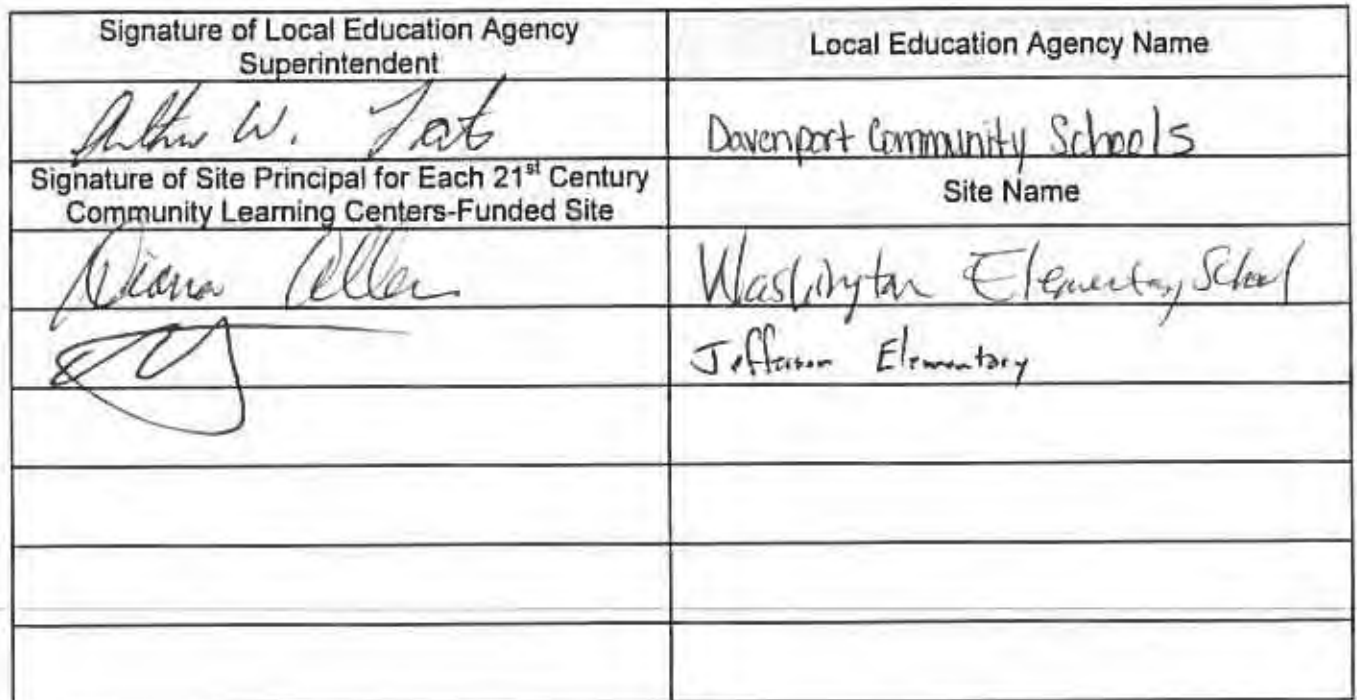 Signature of Local Education Agency
Superintendent
Local Education Agency Name
Arthur W. Tate
Davenport Community Schools
Signature of Site Principal for Each 21st Century
Community Learning Centers-Funded Site
Site Name
Diana Allen
Washington Elementary School
Jefferson Elementary